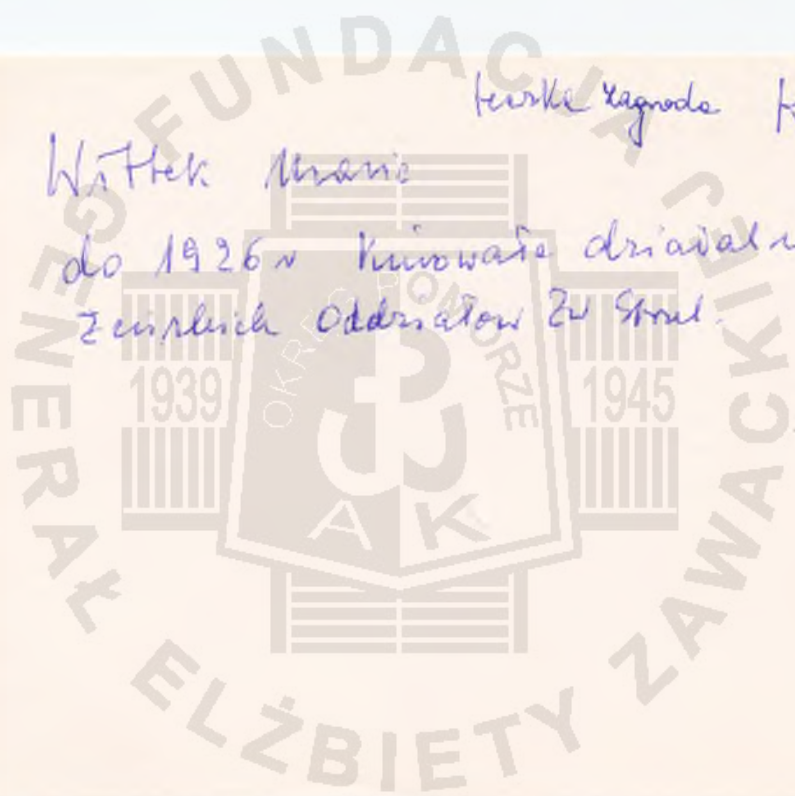 teczka Zagroda
Wittek Maria
do 1926 r kierowała działaln
żeńskich Oddziałów Zw Strzel.
FUNDACJA GENERAŁ ELŻBIETY ZAWACKIEJ
OKRĘG POMORZE
1939 1945
AK